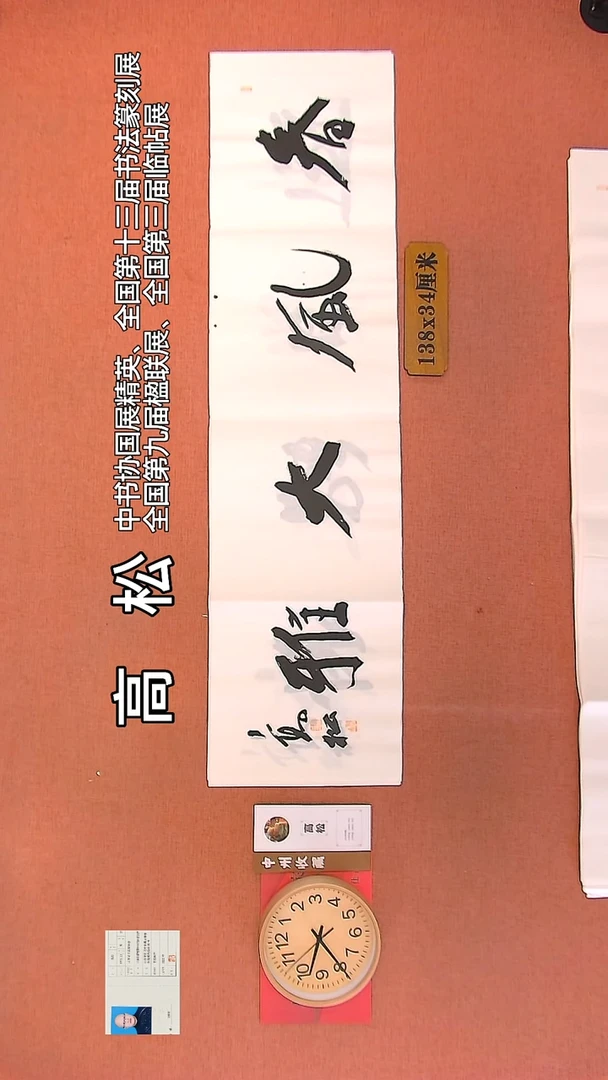 高 松
中书协国展精英、全国第十三届书法篆刻展
全国第九届楹联展、全国第三届临帖展
春風大雅
高松
138x34厘米
高松
中州收藏
12
1
2
3
4
5
6
7
8
9
10
11